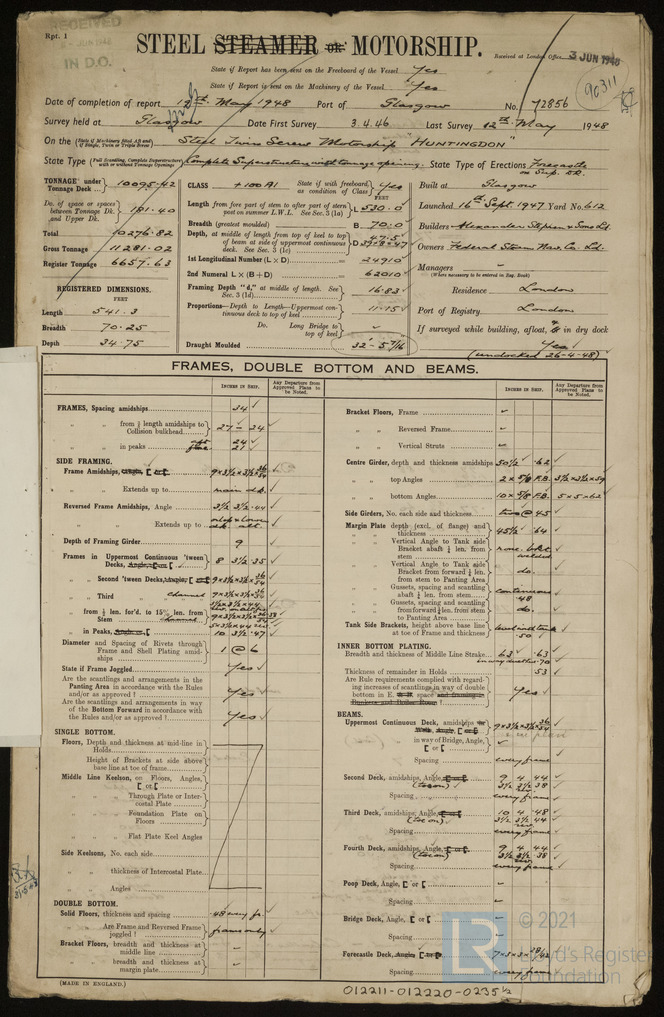 Rpt. 1
RECEIVED
IN D.O.
STEEL STEAMER or MOTORSHIP.
Received at London Office 3 JUN 1948
State if Report has been sent on the Freeboard of the Vessel Yes
State if Report is sent on the Machinery of the Vessel Yes
96311
Date of completion of report 12th May 1948 Port of Glasgow No. 72856
Survey held at Glasgow Date First Survey 3.4.46 Last Survey 12th May 1948
On the Steel Twin Screw Motorship "HUNTINGDON"
State Type (Full Scantling, Complete Superstructure with or without Tonnage Openings) Complete Superstructure with tonnage opening. State Type of Erections Forecastle on Sup. Dk.
TONNAGE under Tonnage Deck 10095.42
Do. of space or spaces between Tonnage Dk. and Upper Dk. 181.40
Total 10276.82
Gross Tonnage 11281.02
Register Tonnage 6657.63
REGISTERED DIMENSIONS.
FEET
Length 541.3
Breadth 70.25
Depth 34.75
CLASS +100A1 State if with freeboard as condition of Class Yes
FEET
Length from fore part of stem to after part of stern post on summer L.W.L. See Sec. 3 (1a) L 530.0
Breadth (greatest moulded) B 70.0
Depth, at middle of length from top of keel to top of beam at side of uppermost continuous deck. See Sec. 3 (1c) D
1st Longitudinal Number (L × D) 24910
2nd Numeral L × (B + D) 62010
Framing Depth "d," at middle of length. See Sec. 3 (1d) 16.83
Proportions—Depth to Length—Uppermost continuous deck to top of keel 11.15
Do. Long Bridge to top of keel
Draught Moulded 32'-5 7/16"
Built at Glasgow
Launched 16th Sept. 1947 Yard No. 612
Builders Alexander Stephen & Sons Ld.
Owners Federal Steam Nav. Co. Ld.
Managers
(Where necessary to be entered in Reg. Book)
Residence London
Port of Registry London
If surveyed while building, afloat, or in dry dock
Yes
(undocked 26-4-48)
FRAMES, DOUBLE BOTTOM AND BEAMS.
INCHES IN SHIP. Any Departure from Approved Plans to be Noted.
FRAMES, Spacing amidships 34
" " from ⅗ length amidships to Collision bulkhead 27 - 24
" " in peaks
SIDE FRAMING.
Frame Amidships, Angle, [ or [
" " Extends up to main dk.
Reversed Frame Amidships, Angle 3½ 3½ .44
" " Extends up to
Depth of Framing Girder 9
Frames in Uppermost Continuous 'tween Decks, Angle, [ or [ 8 3½ .35
" " Second 'tween Decks, Angle, [ or [
" " Third " " channel
" " from ⅗ len. for'd. to 15% len. from Stem channel
" " in Peaks, Angle or [ 10 3½ .47
Diameter and Spacing of Rivets through Frame and Shell Plating amidships 1 @ 6
State if Frame Joggled Yes
Are the scantlings and arrangements in the Panting Area in accordance with the Rules and/or as approved ? Yes
Are the scantlings and arrangements in way of the Bottom Forward in accordance with the Rules and/or as approved ? Yes
SINGLE BOTTOM.
Floors, Depth and thickness at mid-line in Holds
" Height of Brackets at side above base line at toe of frame
Middle Line Keelson, on Floors, Angles, [ or [
" " Through Plate or Intercostal Plate
" " Foundation Plate on Floors
" " Flat Plate Keel Angles
Side Keelsons, No. each side
" " thickness of Intercostal Plate
" " Angles
DOUBLE BOTTOM.
Solid Floors, thickness and spacing .48 every fr.
" " Are Frame and Reversed Frame joggled ? frame only
Bracket Floors, breadth and thickness at middle line
" " breadth and thickness at margin plate
(MADE IN ENGLAND.)
INCHES IN SHIP. Any Departure from Approved Plans to be Noted.
Bracket Floors, Frame
" " Reversed Frame
" " Vertical Strute
Centre Girder, depth and thickness amidships 50½ .62
" " top Angles
" " bottom Angles
Side Girders, No. each side and thickness two @ .45
Margin Plate depth (excl. of flange) and thickness 45½ .64
" " Vertical Angle to Tank side Bracket abaft ¼ len. from stem
" " Vertical Angle to Tank side Bracket from forward ¼ len. from stem to Panting Area do.
" " Gussets, spacing and scantling abaft ¼ len. from stem continuous .48
" " Gussets, spacing and scantling from forward ¼ len. from stem to Panting Area do.
Tank Side Brackets, height above base line at toe of Frame and thickness
INNER BOTTOM PLATING.
Breadth and thickness of Middle Line Strake 63 .63
Thickness of remainder in Holds .53
Are Rule requirements complied with regarding increases of scantlings in way of double bottom in E. R. space and framings in Bunkers and Boiler Room ? Yes
BEAMS.
Uppermost Continuous Deck, amidships
" " in way of Bridge, Angle, [ or [
Spacing every frame
Second Deck, amidships, Angle, [ or [ 9 4 .44
(toe on) 3½ 3½ .38
Spacing every frame
Third Deck, amidships, Angle, [ or [ 10 4 .48
(toe on) 3½ 3½ .44
Spacing every frame
Fourth Deck, amidships, Angle, [ or [ 9 4 .44
(toe on) 3½ 3½ .38
Spacing every frame
Poop Deck, Angle, [ or [
Spacing
Bridge Deck, Angle, [ or [
Spacing
Forecastle Deck, Angle, [ or [
Spacing every frame
© 2021
LR Lloyd's Register Foundation
012211-012220-0235½